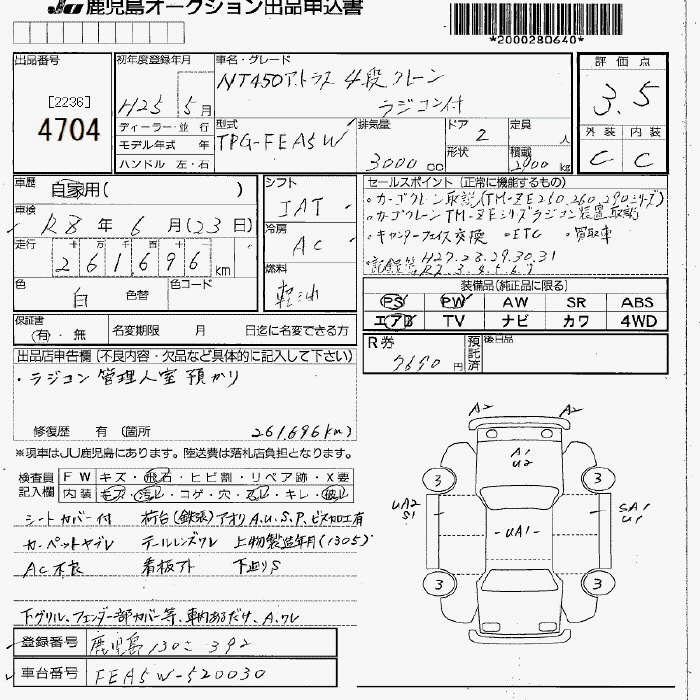 JU 鹿児島オークション出品申込書
*2000280640*
出品番号
[2236]
4704
初年度登録年月
H25 5月
ディーラー・並 行
モデル年式 年
ハンドル 左・右
車名・グレード
NT450アトラス 4段クレーン
ラジコン付
型式
TPG-FEA5W
排気量
3000 cc
ドア
2
形状
定員
人
積載
2900 kg
評 価 点
3.5
外 装 内 装
C C
車歴
自家用( )
車検
R8 年 6 月(23日)
走行
十 万 千 百 十
261,696 km
色
白 色替
色コード
シフト
IAT
冷房
AC
燃料
軽油
セールスポイント (正常に機能するもの)
・カーゴクレーン取説(TM-ZE250.260.290シリーズ)
・カーゴクレーンTM-ZEシリーズラジコン装置取説
・キャンターフェイス交換 ・ETC ・買取車
・記録簿 H27.28.29.30.31
R2.3.4.5.6.7
装備品(純正品に限る)
PS PW AW SR ABS
エアB TV ナビ カワ 4WD
保証書
(有)・無
名変期限 月 日迄に名変できる方
R券
7690 円
預託済
後日品
出品店申告欄 (不良内容・欠品など具体的に記入して下さい)
・ラジコン管理人室預かり
修復歴 有 (箇所 261,696km)
※現車はJU鹿児島にあります。陸送費は落札店負担となります。
検査員記入欄
FW キズ・飛石・ヒビ割・リペア跡・X要
内装 キズ・汚レ・コゲ・穴・スレ・キレ・破レ
シートカバー付 荷台(鉄張)アオリA.U.S.P.ビス加工有
カーペットヤブレ テールレンズワレ 上物製造年月(1305)
AC不良 看板アト 下廻りS
下グリル、フェンダー部カバー等、車内あるだけ、A、ワレ
登録番号 鹿児島130さ392
車台番号 FEA5W-520030
A2 A2
A1
U2
3 3
UA2
S1
-UA1-
SA1
U1
3 3